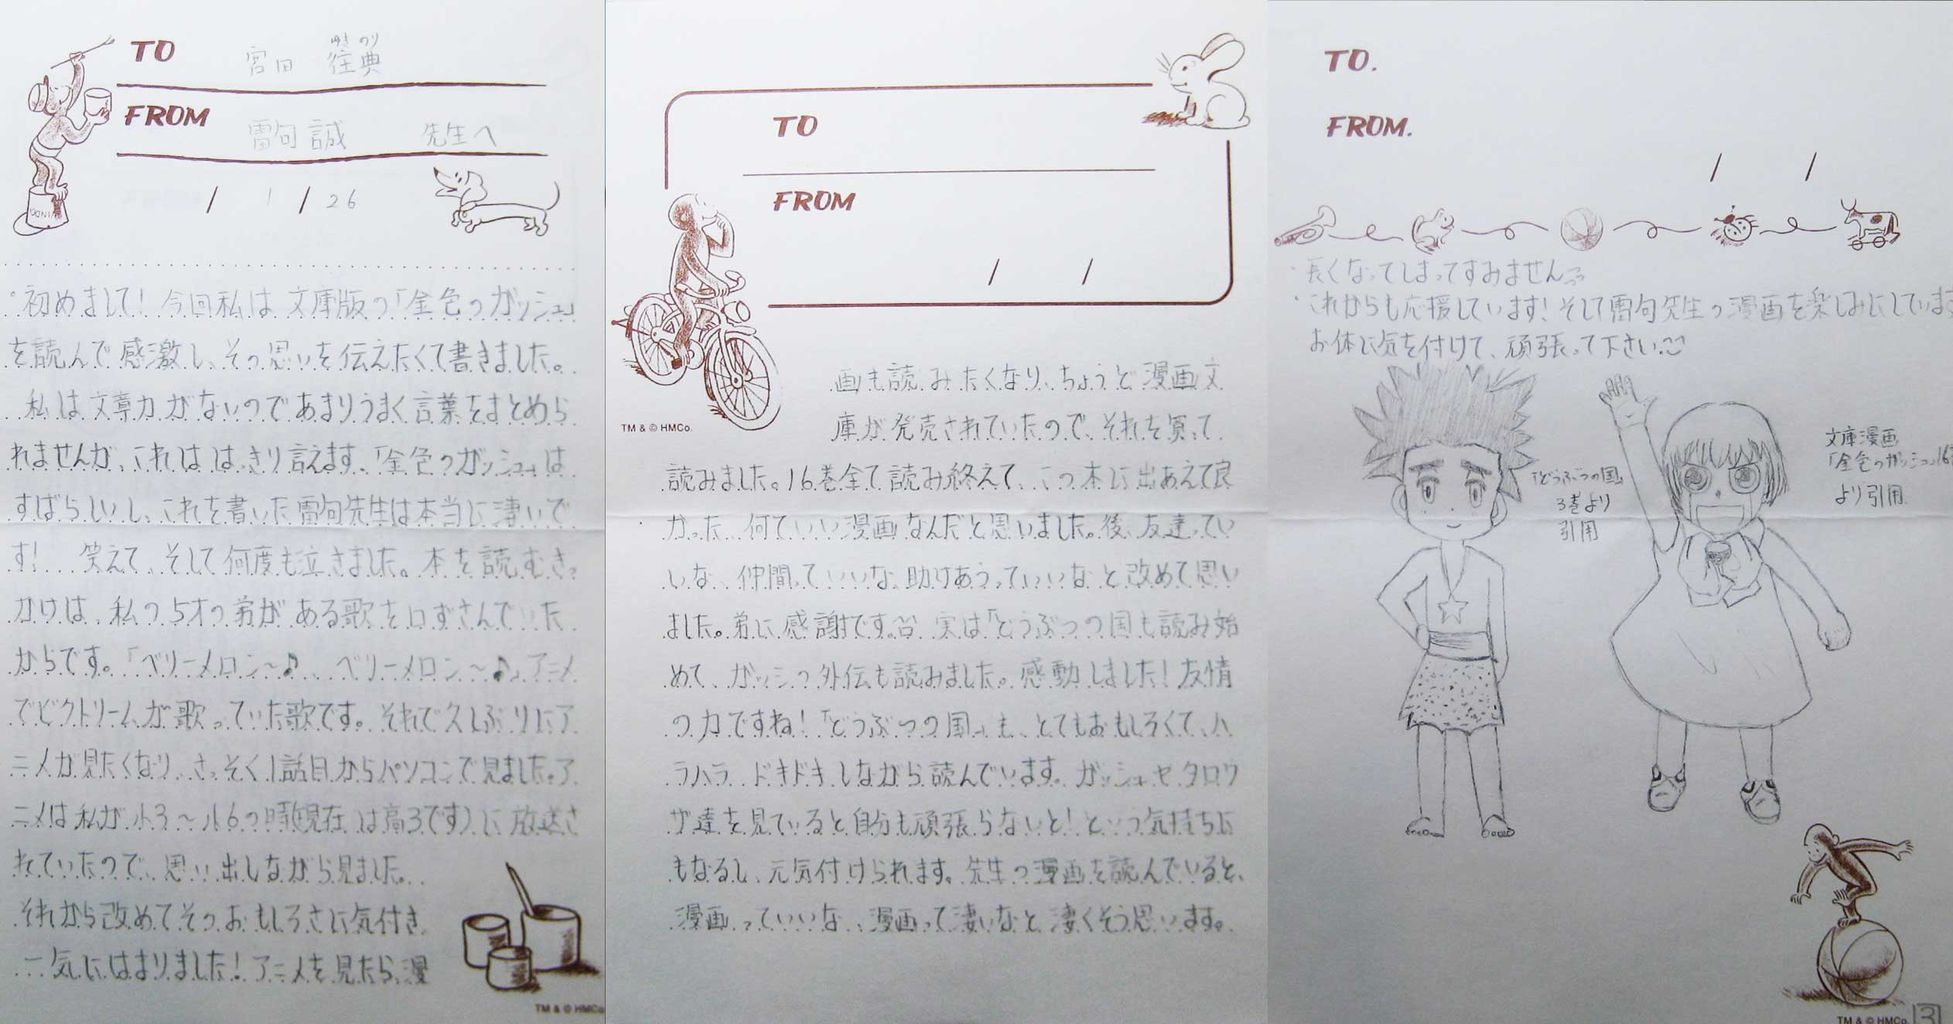 TO 宮田 ゆきのり 往典
FROM 雷句 誠 先生へ
/ 1 / 26
・初めまして！今回私は文庫版の「金色のガッシュ」
を読んで感激し、その思いを伝えたくて書きました。
私は文章力がないのであまりうまく言葉をまとめら
れませんが、これははっきり言えます。「金色のガッシュ」は
すばらしいし、これを書いた雷句先生は本当に凄いで
す！笑えて、そして何度も泣きました。本を読むきっ
かけは、私の5才の弟がある歌を口ずさんでいた
からです。「ベリーメロン〜♪、ベリーメロン〜♪」アニメ
でビクトリームが歌っていた歌です。それで久しぶりにア
ニメが見たくなり、さっそく1話目からパソコンで見ました。ア
ニメは私が小3〜小6の時(現在は高3です)に放送さ
れていたので、思い出しながら見ました。
それから改めてそのおもしろさに気付き
一気にはまりました！アニメを見たら、漫
TM & © HMCo.
TO
FROM
/ /
TM & © HMCo.
画も読みたくなり、ちょうど漫画文
庫が発売されていたので、それを買って
読みました。16巻全て読み終えて、この本に出あえて良
かった、何ていい漫画なんだと思いました。後、友達ってい
いな、仲間っていいな、助けあうっていいなと改めて思い
ました。弟に感謝です。実は「どうぶつの国」も読み始
めて、ガッシュの外伝も読みました。感動しました！友情
の力ですね！「どうぶつの国」も、とてもおもしろくて、ハ
ラハラ、ドキドキしながら読んでいます。ガッシュやタロウ
ザ達を見ていると自分も頑張らないと！という気持ちに
もなるし、元気付けられます。先生の漫画を読んでいると、
漫画っていいな、漫画って凄いなと凄くそう思います。
TO.
FROM.
/ /
・長くなってしまってすみません
・これからも応援しています！そして雷句先生の漫画を楽しみにしています
お体に気を付けて、頑張って下さい
「どうぶつの国」
3巻より
引用
文庫漫画
「金色のガッシュ」16
より引用
TM & © HMCo.
3